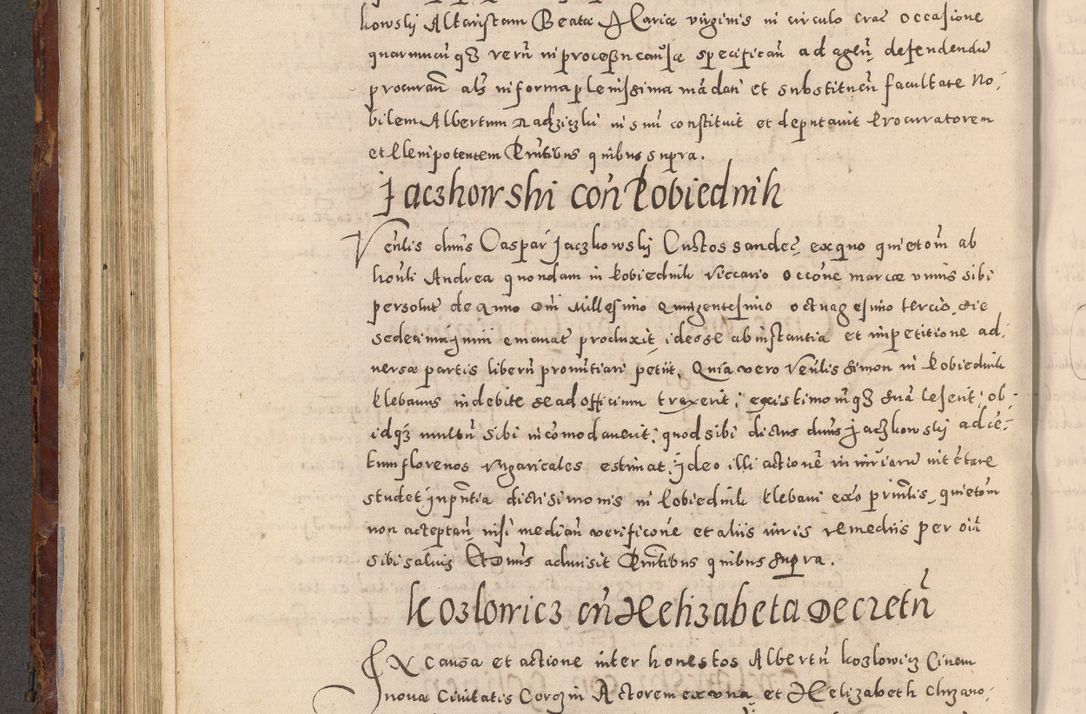 kowskj Altaristam Beatæ Mariæ virginis in circulo crac occasione
quarumcuq3 rerū in processu causæ specificaū ad agen̄ defendendū
procuran̄ als in forma plenissima mādati et substituen̄ facultate No,
bilem Albertum Radziczki in suū constituit et deputauit Procuratorem
et Plenipotentem Pn̄tibus quibus supra.
Jaczkowski con̄ Podiednik
Ven̄lis dnūs Caspar Jaczkowskj Custos sandec̄ ex quo quietom̄ ab
hon̄li Andrea quondam in Podiednik Viccario occōne marcæ vnius sibi
persolut̄ de Anno Dn̄i Millesimo Quingentesimo octuagesimo tercio, die
sedecima Junii emanat̄ produxit ideo se ab instantia et inpetitione ad,
uersæ partis liberū pronuntiari petiit. Quia vero Ven̄lis Simon in Podiednik
Plebanus indebite se ad officium traxerit, existimom̄q3 suā leserit, ob
idq3 multū sibi incōmodauerit, quod sibi dictus dnūs Jaczkowskj ad cē-
tum florenos vngaricales estimat. Ideo illi actionē iniuriarū intētare
studet Jn pn̄tia dicti simonis in Podiednik Plebani exo primlis, quietom̄
non acceptan̄ nisi median̄ verificōne et aliis iuris remediis per om̄
sibi saluis Et Dnūs admisit Pn̄tibus quibus supra.
Kozlowicz cn̄ Helizabeta Decretū
Ex causa et actione inter honestos Albertū kozlowicz Ciuem
nouæ Ciuitatis Corczin Actorem ex vna et Helizabeth Chrzano,